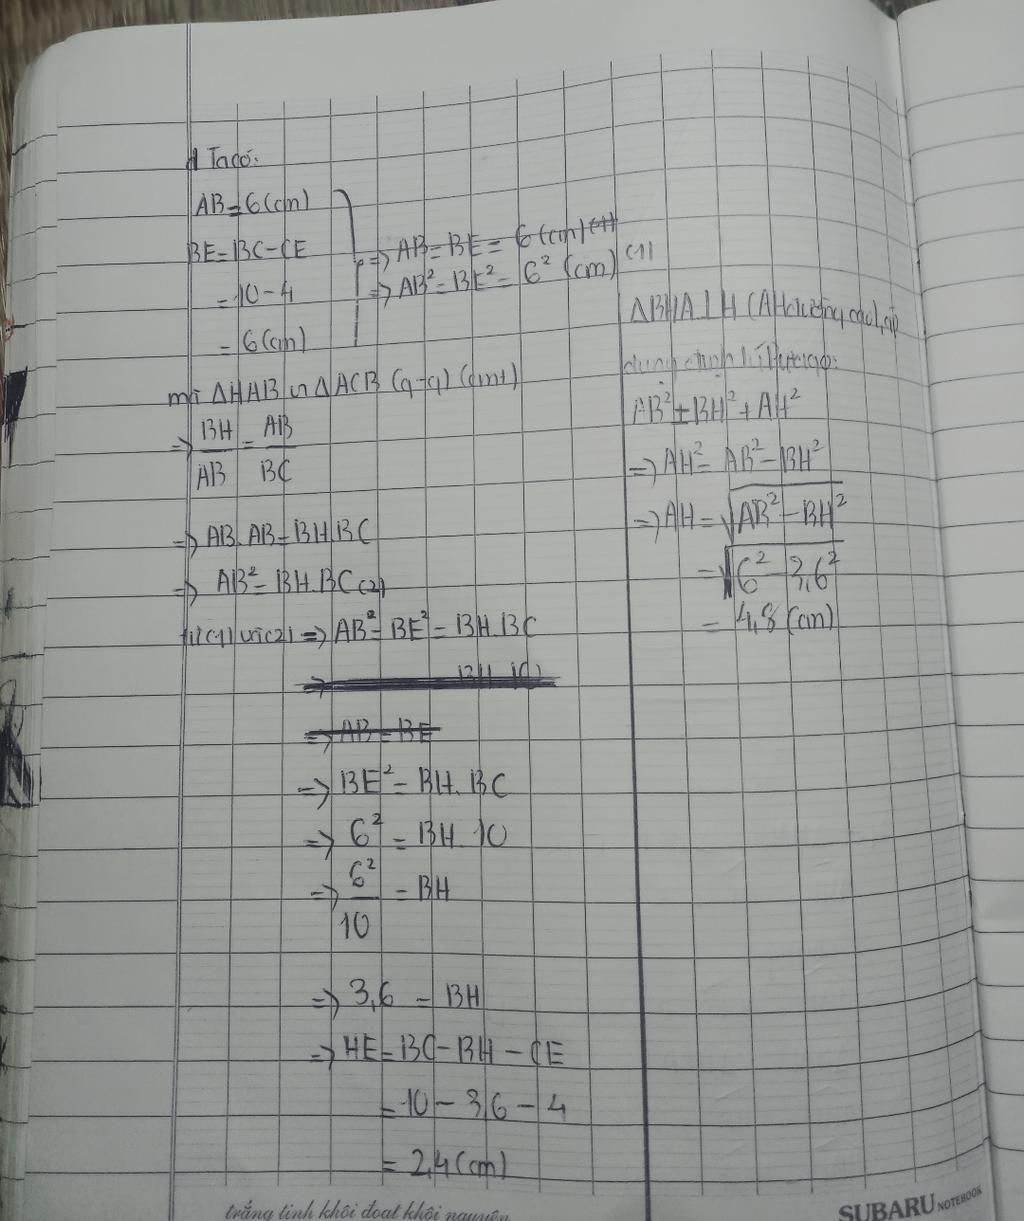 Ta có:
AB = 6 (cm)
BE = BC - CE
= 10 - 4
= 6 (cm)
=> AB = BE = 6 (cm)
=> AB² = BE² = 6² (cm) (1)
mà ΔHAB ∽ ΔACB (g-g) (cmt)
=> BH/AB = AB/BC
=> AB.AB = BH.BC
=> AB² = BH.BC (2)
từ (1) và (2) => AB² = BE² = BH.BC
=> BH 10
=> AB = BE
=> BE² = BH.BC
=> 6² = BH.10
=> 6²/10 = BH
=> 3,6 = BH
=> HE = BC - BH - CE
= 10 - 3,6 - 4
= 2,4 (cm)
ΔBHA ⊥ H (AH đường cao), áp
dụng định lí Pytago:
AB² = BH² + AH²
=> AH² = AB² - BH²
=> AH = √AB² - BH²
= √6² - 3,6²
= 4,8 (cm)
trắng tinh khôi đoạt khôi nguyên
SUBARU NOTEBOOK